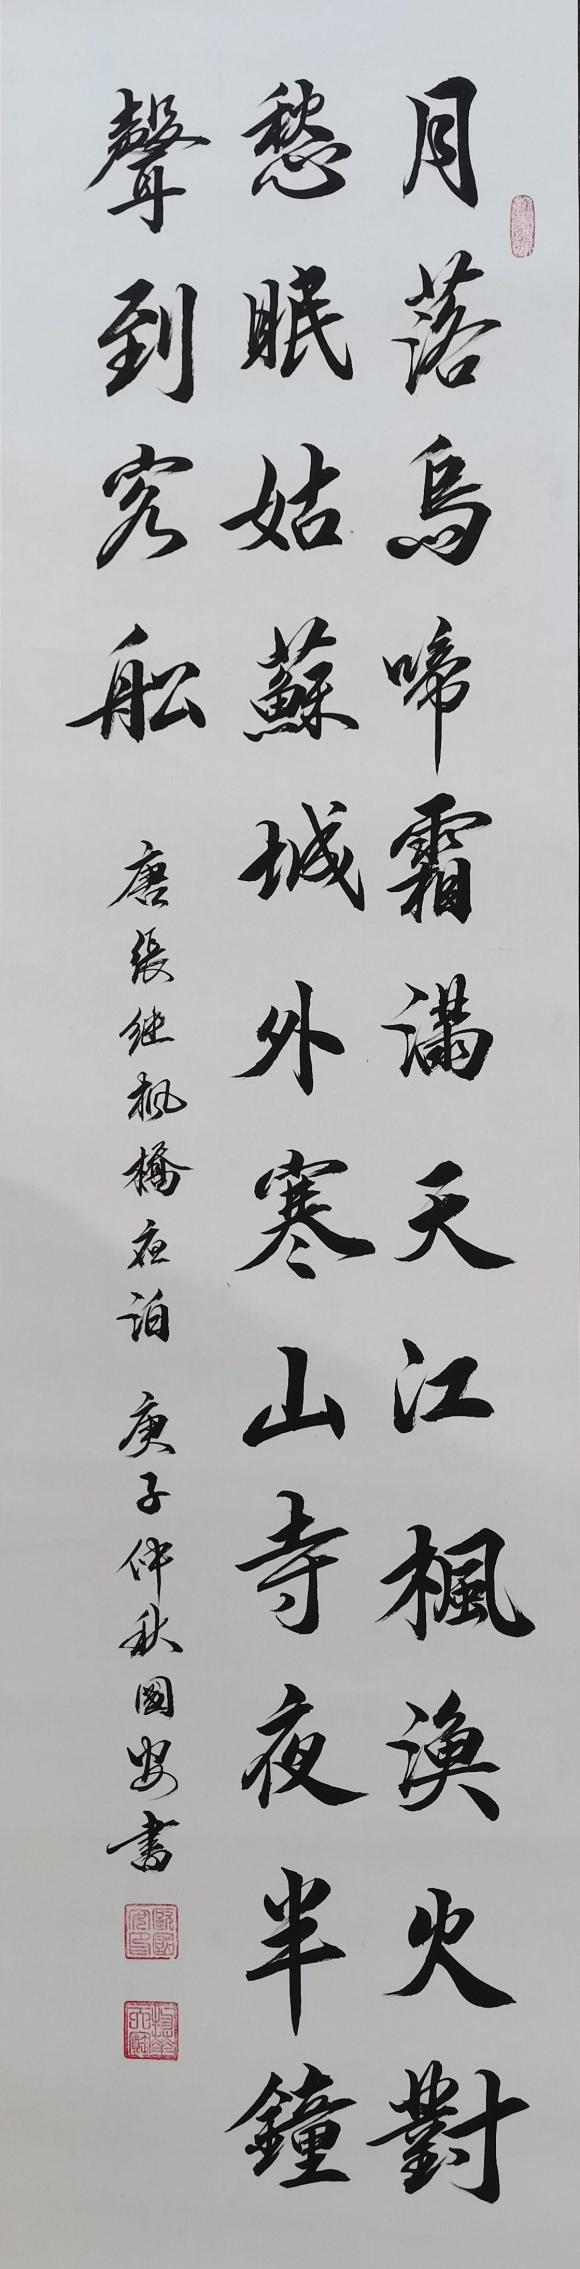 月落烏啼霜满天江楓渔火對
愁眠姑蘇城外寒山寺夜半鐘
聲到客船
唐張继枫橋夜泊 庚子仲秋國安書